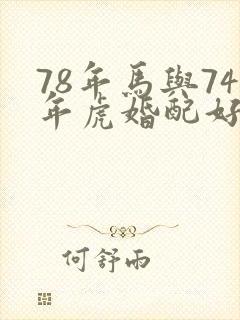 78年馬與74
年虎婚配好
何舒雨